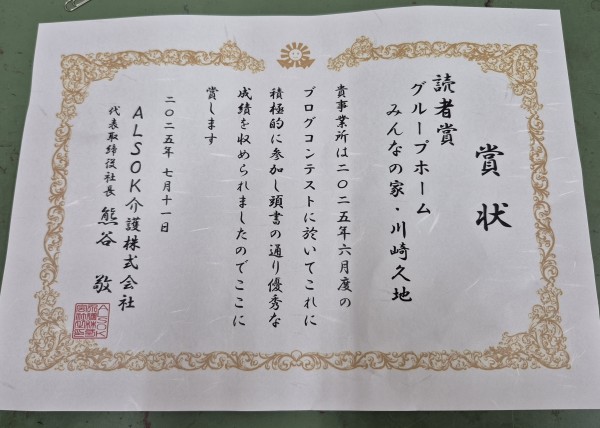 賞状
読者賞
グループホーム
みんなの家・川崎久地
貴事業所は二〇二五年六月度の
ブログコンテストに於いてこれに
積極的に参加し頭書の通り優秀な
成績を収められましたのでここに
賞します
二〇二五年 七月十一日
ALSOK介護株式会社
代表取締役社長 熊谷 敬